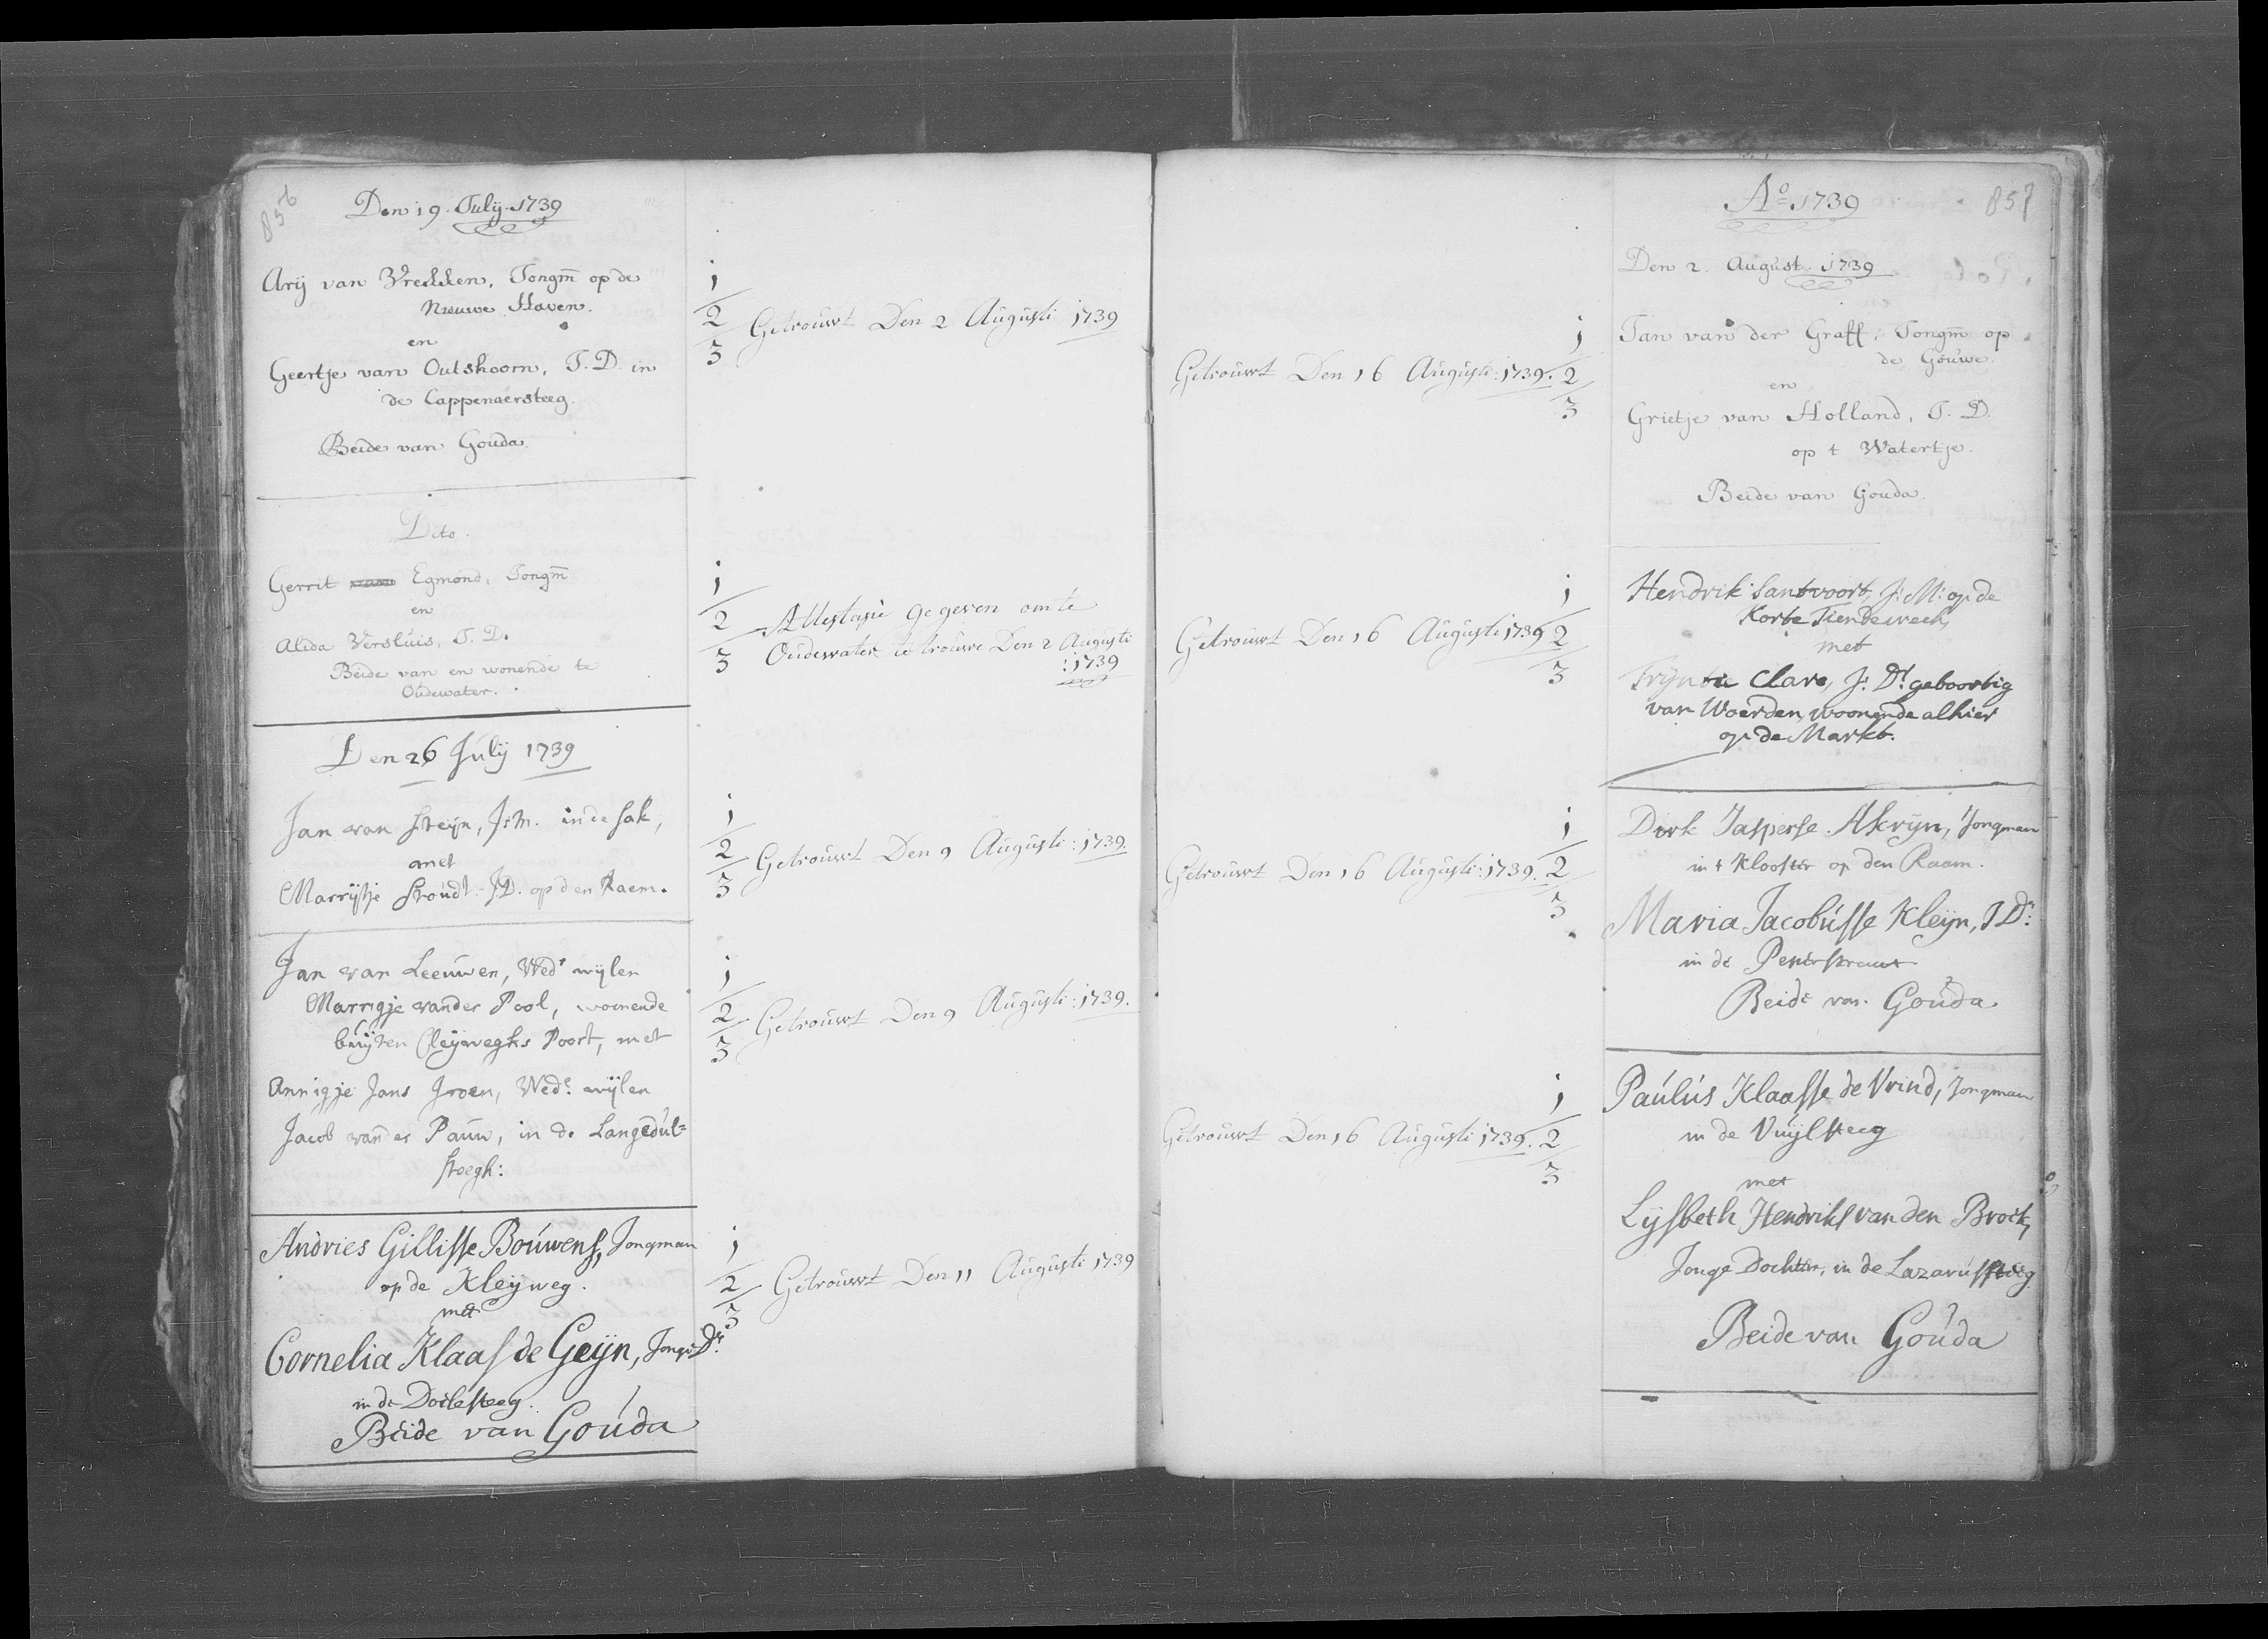 856
Den 19. July. 1739
Arij van Vredden, Jongm̄ op de
Nieuwe Haven.
en
Geertje van Outshoorn, J. D. in
de Cappenaersteeg.
Beide van Gouda.
1
2
3
Getrouwt Den 2 Augusti 1739
Dito.
Gerrit Egmond, Jongm̄
en
Alida Versluis, J. D.
Beide van en wonende te
Oudewater.
1
2
3
Attestasie gegeven om te
Oudewater te trouwe Den 2 Augusti
:1739
Den 26 Julij 1739
Jan van Steijn, J:m. in de sak,
met
Marrijtje Stoudt. J.D. op den Raem.
1
2
3
Getrouwt Den 9 Augusti: 1739.
Jan van Leeuwen, Wedr wijlen
Marrigje vander Pool, woenende
buijten Cleijweghs Poort, met
Annigje Jans Groen, Wede. wijlen
Jacob vander Pauw, in de Langedul=
steegh:
1
2
3
Getrouwt Den 9 Augusti: 1739.
Andries Gillisse Bouwens, Jongman
op de Kleijweg.
met
Cornelia Klaas de Geijn, Jonge Dr.
in de Doelesteeg.
Beide van Gouda
1
2
3
Getrouwt Den 11 Augusti 1739
Ao. 1739
857
Den 2. August. 1739
Jan van der Graff, Jongm̄ op
de Gouwe.
en
Grietje van Holland, J. D.
op t Watertje.
Beide van Gouda.
Getrouwt Den 16 Augusti: 1739.
1
2
3
Hendrik Santvoort, J: M: op de
Korte Tiendeweeh,
met
Trijntie Clare, J: D: geboortig
van Woerden, woonende alhier
op de Markt.
Getrouwt Den 16 Augusti 1739
1
2
3
Dirk Jasperse Akrijn, Jongman
in t Klooster op den Raam.
Maria Jacobusse Kleijn, J Dr:
in de Peperstraat
Beide van Gouda
Getrouwt Den 16 Augusti: 1739.
1
2
3
Paulus Klaasse de Vrind, Jongman
in de Vuijlsteeg
met
Lijsbeth Hendriks van den Broek,
Jonge Dochter, in de Lazarussteeg
Beide van Gouda
Getrouwt Den 16 Augusti 1739.
1
2
3